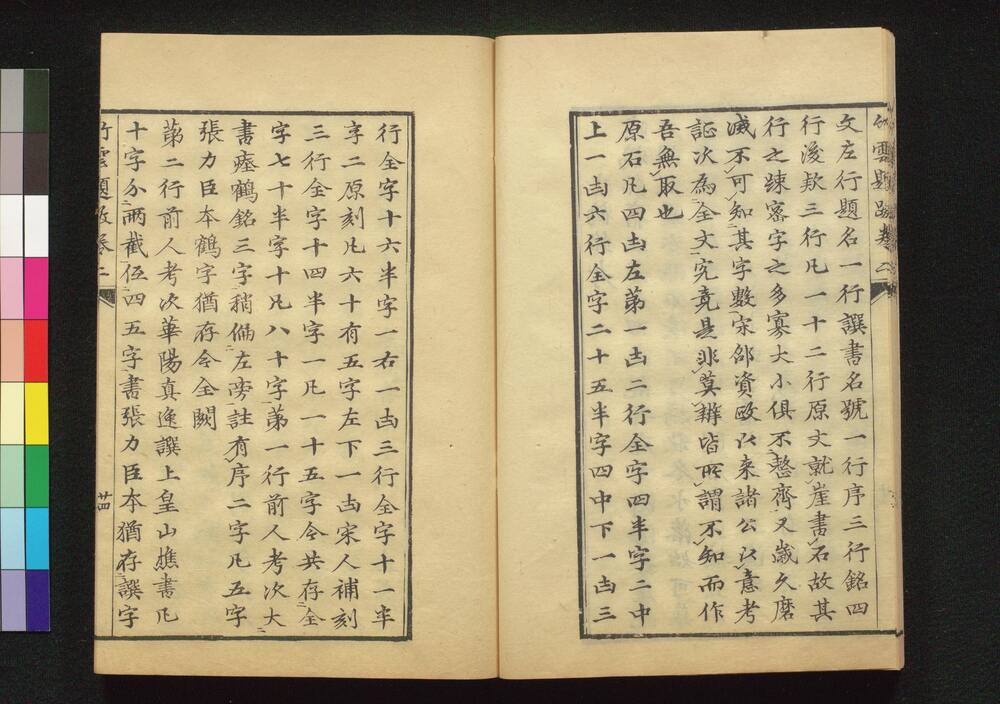 竹雲題跋卷二
文左行題名一行譔書名號一行序三行銘四
行後欵三行凡一十二行原文就崖書石故其
行之踈宻字之多寡大小俱不整齊又歲久磨
滅不可知其字數宋邵資政以来諸公以意考
証次為全文究竟是非莫辨皆所謂不知而作
吾無取也
原石凡四凷左苐一凷二行全字四半字二中
上一凷六行全字二十五半字四中下一凷三
行全字十六半字一右一凷三行全字十一半
字二原刻凡六十有五字左下一凷宋人補刻
三行全字十四半字一凡一十五字今共存全
字七十半字十凡八十字苐一行前人考次大
書瘞鶴銘三字稍偏左旁註有序二字凡五字
張力臣本鶴字猶存今全闕
苐二行前人考次華陽真逸譔上皇山樵書凡
十字分兩截伍四五字書張力臣本猶存譔字
竹雲題跋卷二
廿四